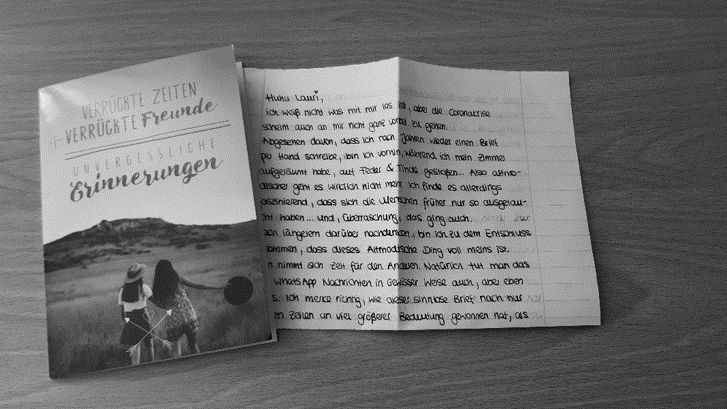 VERRÜCKTE ZEITEN
+ VERRÜCKTE Freunde
UNVERGESSLICHE
Erinnerungen
Huhu Lauri,
ich weiß nicht was mit mir los ist, aber die Coronakrise
scheint auch an mir nicht ganz vorbei zu gehen.
Abgesehen davon, dass ich nach Jahren wieder einen Brief
per Hand schreibe, bin ich vorhin, während ich mein Zimmer
aufgeräumt habe, auf Feder & Tinte gestoßen... Also altmo-
discher geht es wirklich nicht mehr. Ich finde es allerdings
faszinierend, dass sich die Menschen früher nur so ausgetau-
scht haben... und, Überraschung, das ging auch.
längerem darüber nachdenken, bin ich zu dem Entschluss
kommen, dass dieses Altmodische Ding voll meins ist.
n nimmt sich Zeit für den Anderen. Natürlich tut man das
WhatsApp Nachrichten in gewisser Weise auch, aber eben
s. Ich merke richtig, wie dieser sinnlose Brief nach nur
en Zeilen an viel größerer Bedeutung gewonnen hat, als